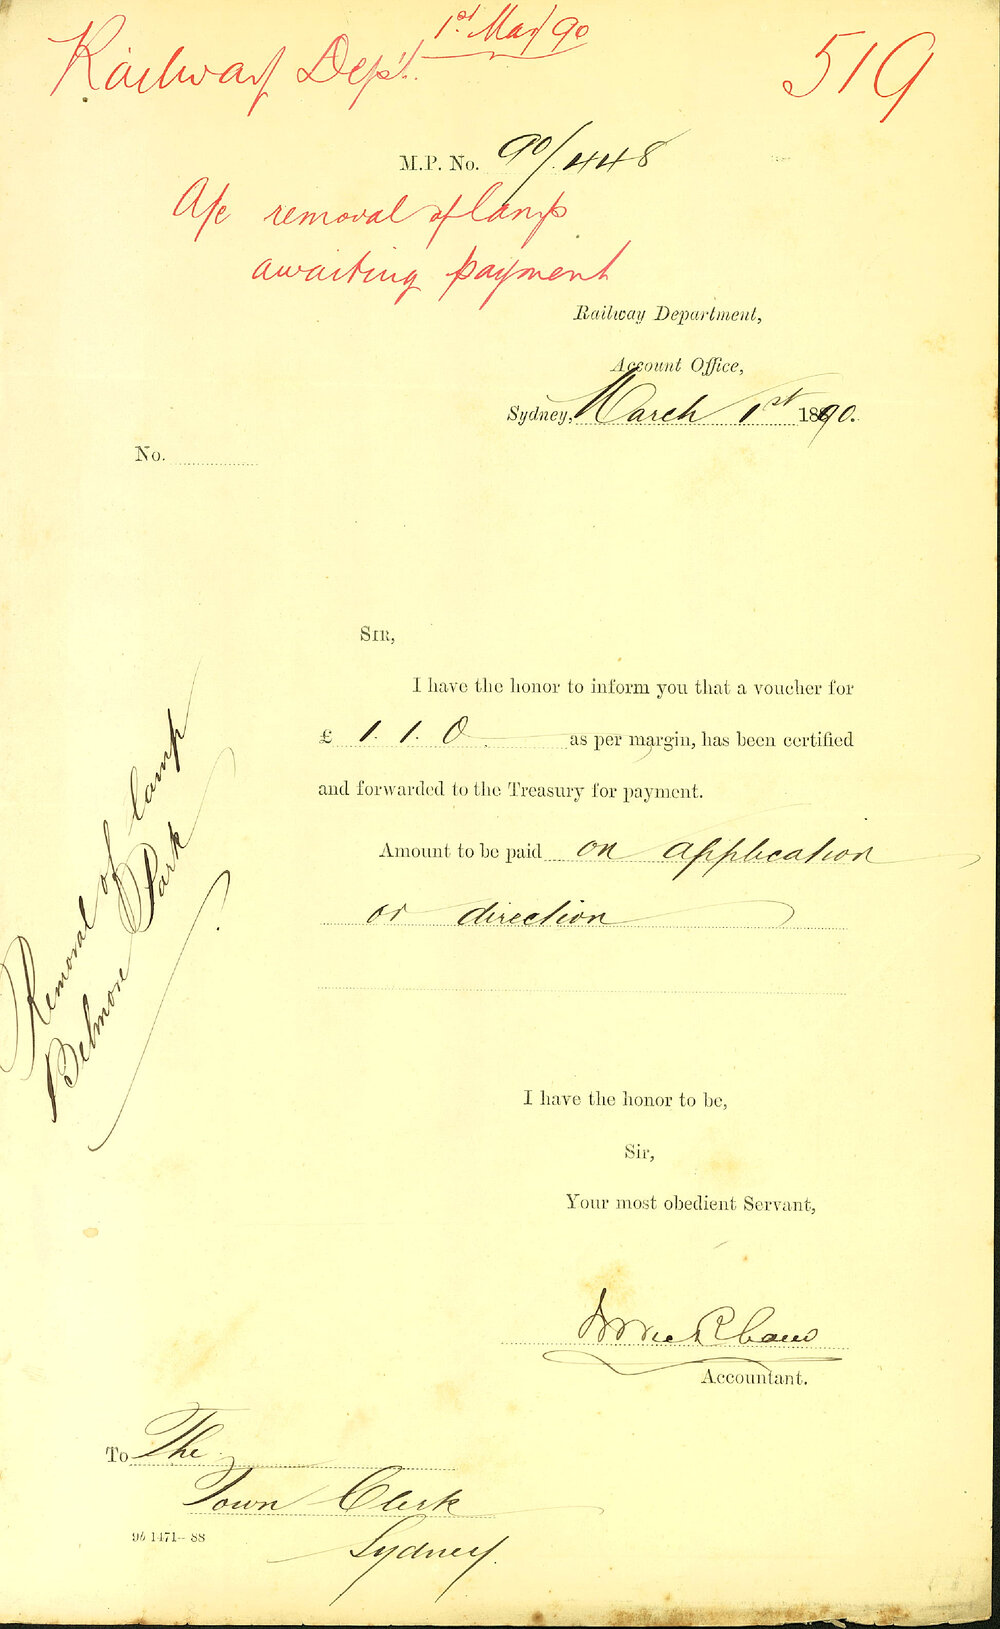 Railway Dep't. 1st Mar 90
519
M.P. No. 90/448
A/c removal of lamp
awaiting payment
Railway Department,
Account Office,
Sydney, March 1st 1890.
No.
SIR,
I have the honor to inform you that a voucher for
£ 1. 1. 0 as per margin, has been certified
and forwarded to the Treasury for payment.
Amount to be paid on application
or direction
Removal of lamp
Belmore Park
I have the honor to be,
Sir,
Your most obedient Servant,
Accountant.
To The
Town Clerk
Sydney.
9b 1471—88